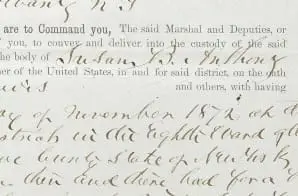 N.Y.
are to Command you, The said Marshal and Deputies, or
you, to convey and deliver into the custody of the said
he body of Susan B. Anthony
ner of the United States, in and for said district, on the oath
and others, with having
day of November 1872, at
in the Eighth Ward of
County State of New York
then and there had for a